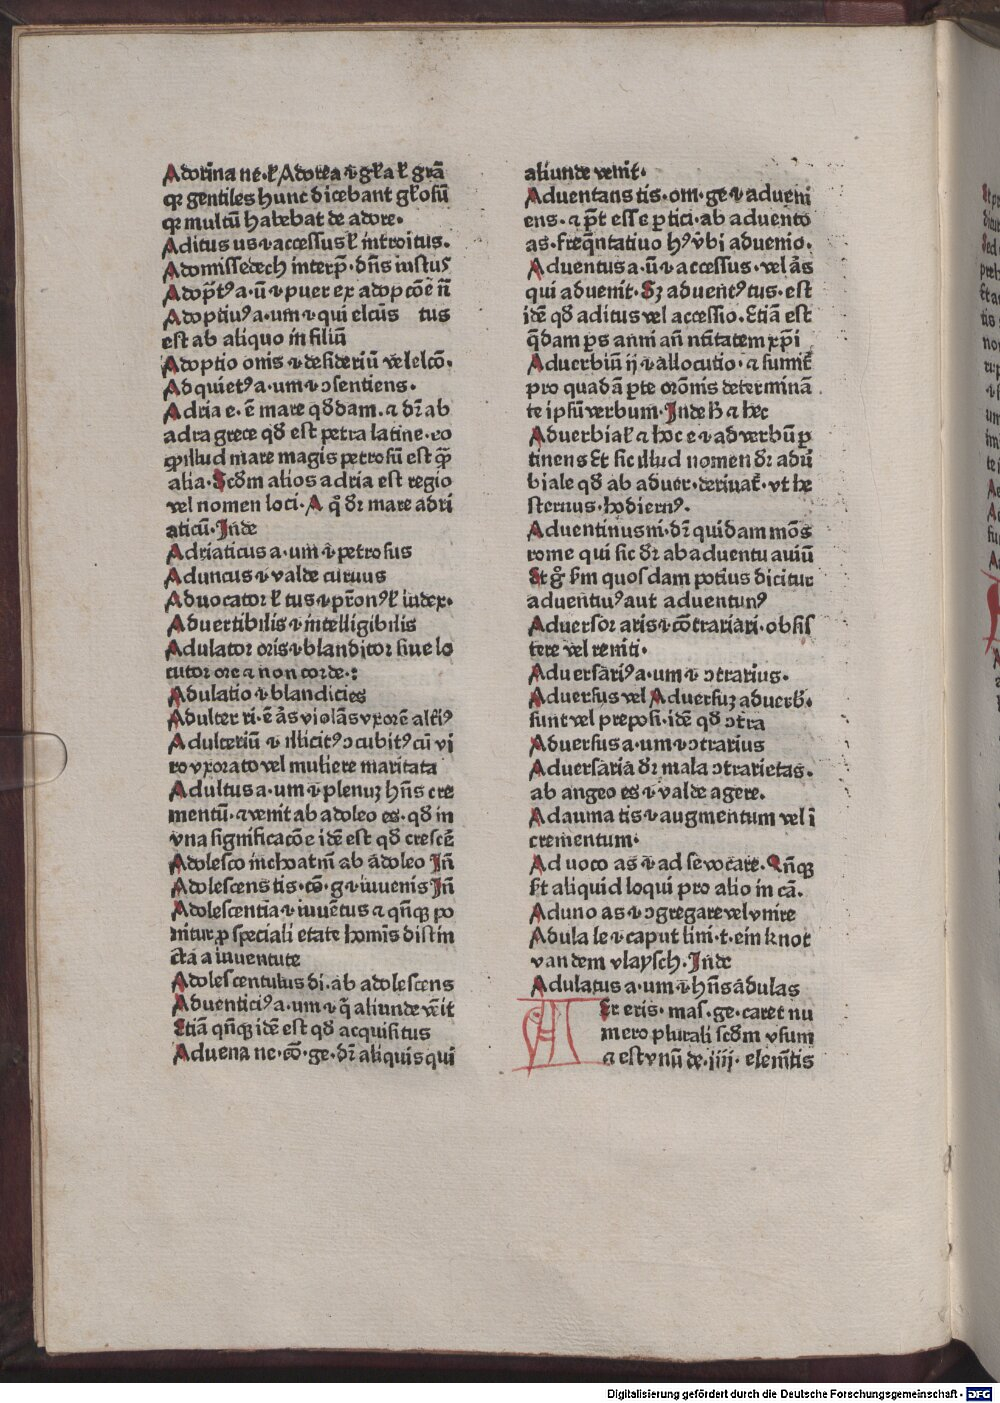 Adorina ne·ł Adorea ⁊ gła ł grā
qꝛ gentiles hunc dicebant głosū
qꝛ multū habebat de adore·
Aditus us ⁊ accessus ł introitus·
Adonissedech interp̄· dn̄s iustus
Adopt᷒ a·ū ⁊ puer ex adopcōe n̄
Adoptiu᷒ a·um ⁊ qui elcūs tus
est ab aliquo in filiū
Adoptio onis ⁊ desideriū vel elcō·
Adquiet᷒ a·um ⁊ ↄsentiens·
Adria e· ē mare qd̄dam· ⁊ dr̄ ab
adra grece qd̄ est petra latine·eo
ꝙ illud mare magis petrosū est qᷓ
alia· Scd̄m alios adria est regio
vel nomen loci· A q̊ dr̄ mare adri
aticū· Inde
Adriaticus a·um ⁊ petrosus
Aduncus ⁊ valde curuus
Aduocator ł tus ⁊ pr̄on᷒ ł iudex·
Aduertibilis ⁊ intelligibilis
Adulator oris ⁊ blanditor siue lo
cutor ore ⁊ non corde·:
Adulatio ⁊ blandicies
Adulter ri· ē ās violās vxorē alti᷒
Adulteriū ⁊ illicit᷒ ↄcubit᷒ cū vi
ro vxorato vel muliere maritata
Adultus a·um ⁊ plenuʒ hn̄s cre
mentū· ⁊ venit ab adoleo es· qd̄ in
vna significacōe idē est qd̄ crescē
Adolesco inchoatiū ab adoleo In̄
Adolescens tis· cō· g ⁊ iuuenis In̄
Adolescentia ⁊ iuuētus ⁊ qn̄qꝫ po
nitur ꝓ speciali etate homīs distin
cta a iuuentute
Adolescentulus di· ab adolescens
Aduentici᷒ a·um ⁊ q̄ aliunde vēit
Etiā qn̄qꝫ idē est qd̄ acquisitus
Aduena ne·cō·ge·dr̄ aliquis qui
aliunde venit·
Aduentans tis·om·ge ⁊ adueni
ens· ⁊ pt̄ esse ꝑtici·ab aduento
as·freqn̄tatiuo h᷒ v̄bi aduenio·
Aduentus a·ū ⁊ accessus·vel ās
qui aduenit· Sꝫ aduent᷒ tus·est
idē qd̄ aditus vel accessio· Etiā est
q̄dam ꝑs anni an̄ nītitatem xp̄i
Aduerbiū ij ⁊ allocutio· ⁊ sumit᷑
pro quadā ꝑte orōnis determinā
te ipsū verbum· Inde h̄ ⁊ hec
Aduerbial᷑ ⁊ hoc e ⁊ ad verbū ꝑ
tinens Et sic illud nomen dr̄ adū
biale qd̄ ab aduer· deriuat᷑· vt he
sternus·hodiern᷒·
Aduentinus ni· dr̄ quidam mōs
rome qui sic dr̄ ab aduentu auiū
Et g̊ sm quosdam potius dicitur
aduentiu᷒ aut aduentun᷒
Aduersor aris ⁊ cōtrariari·obsis
tere vel reniti·
Aduersari᷒ a·um ⁊ ↄtrarius·
Aduersus vel Aduersuʒ aduerb̄·
sunt vel preposi·idē qd̄ ↄtra
Aduersus a·um ⁊ ↄtrarius
Aduersaria dr̄ mala ↄtrarietas·
ab angeo es ⁊ valde agere·
Adauma tis ⁊ augmentum vel ī
crementum·
Aduoco as ⁊ ad se vocare· Qn̄qꝫ
Et aliquid loqui pro alio in cā·
Aduno as ⁊ ↄgregare vel vnire
Adula le ⁊ caput lini·t·ein knot
van dem vlaysch· Inde
Adulatus a·um ⁊ hn̄s adulas
AEr eris· mas·ge·caret nu
mero plurali scd̄m vsum
⁊ est vnū de·iiij· elemn̄tis
Digitalisierung gefördert durch die Deutsche Forschungsgemeinschaft - DFG